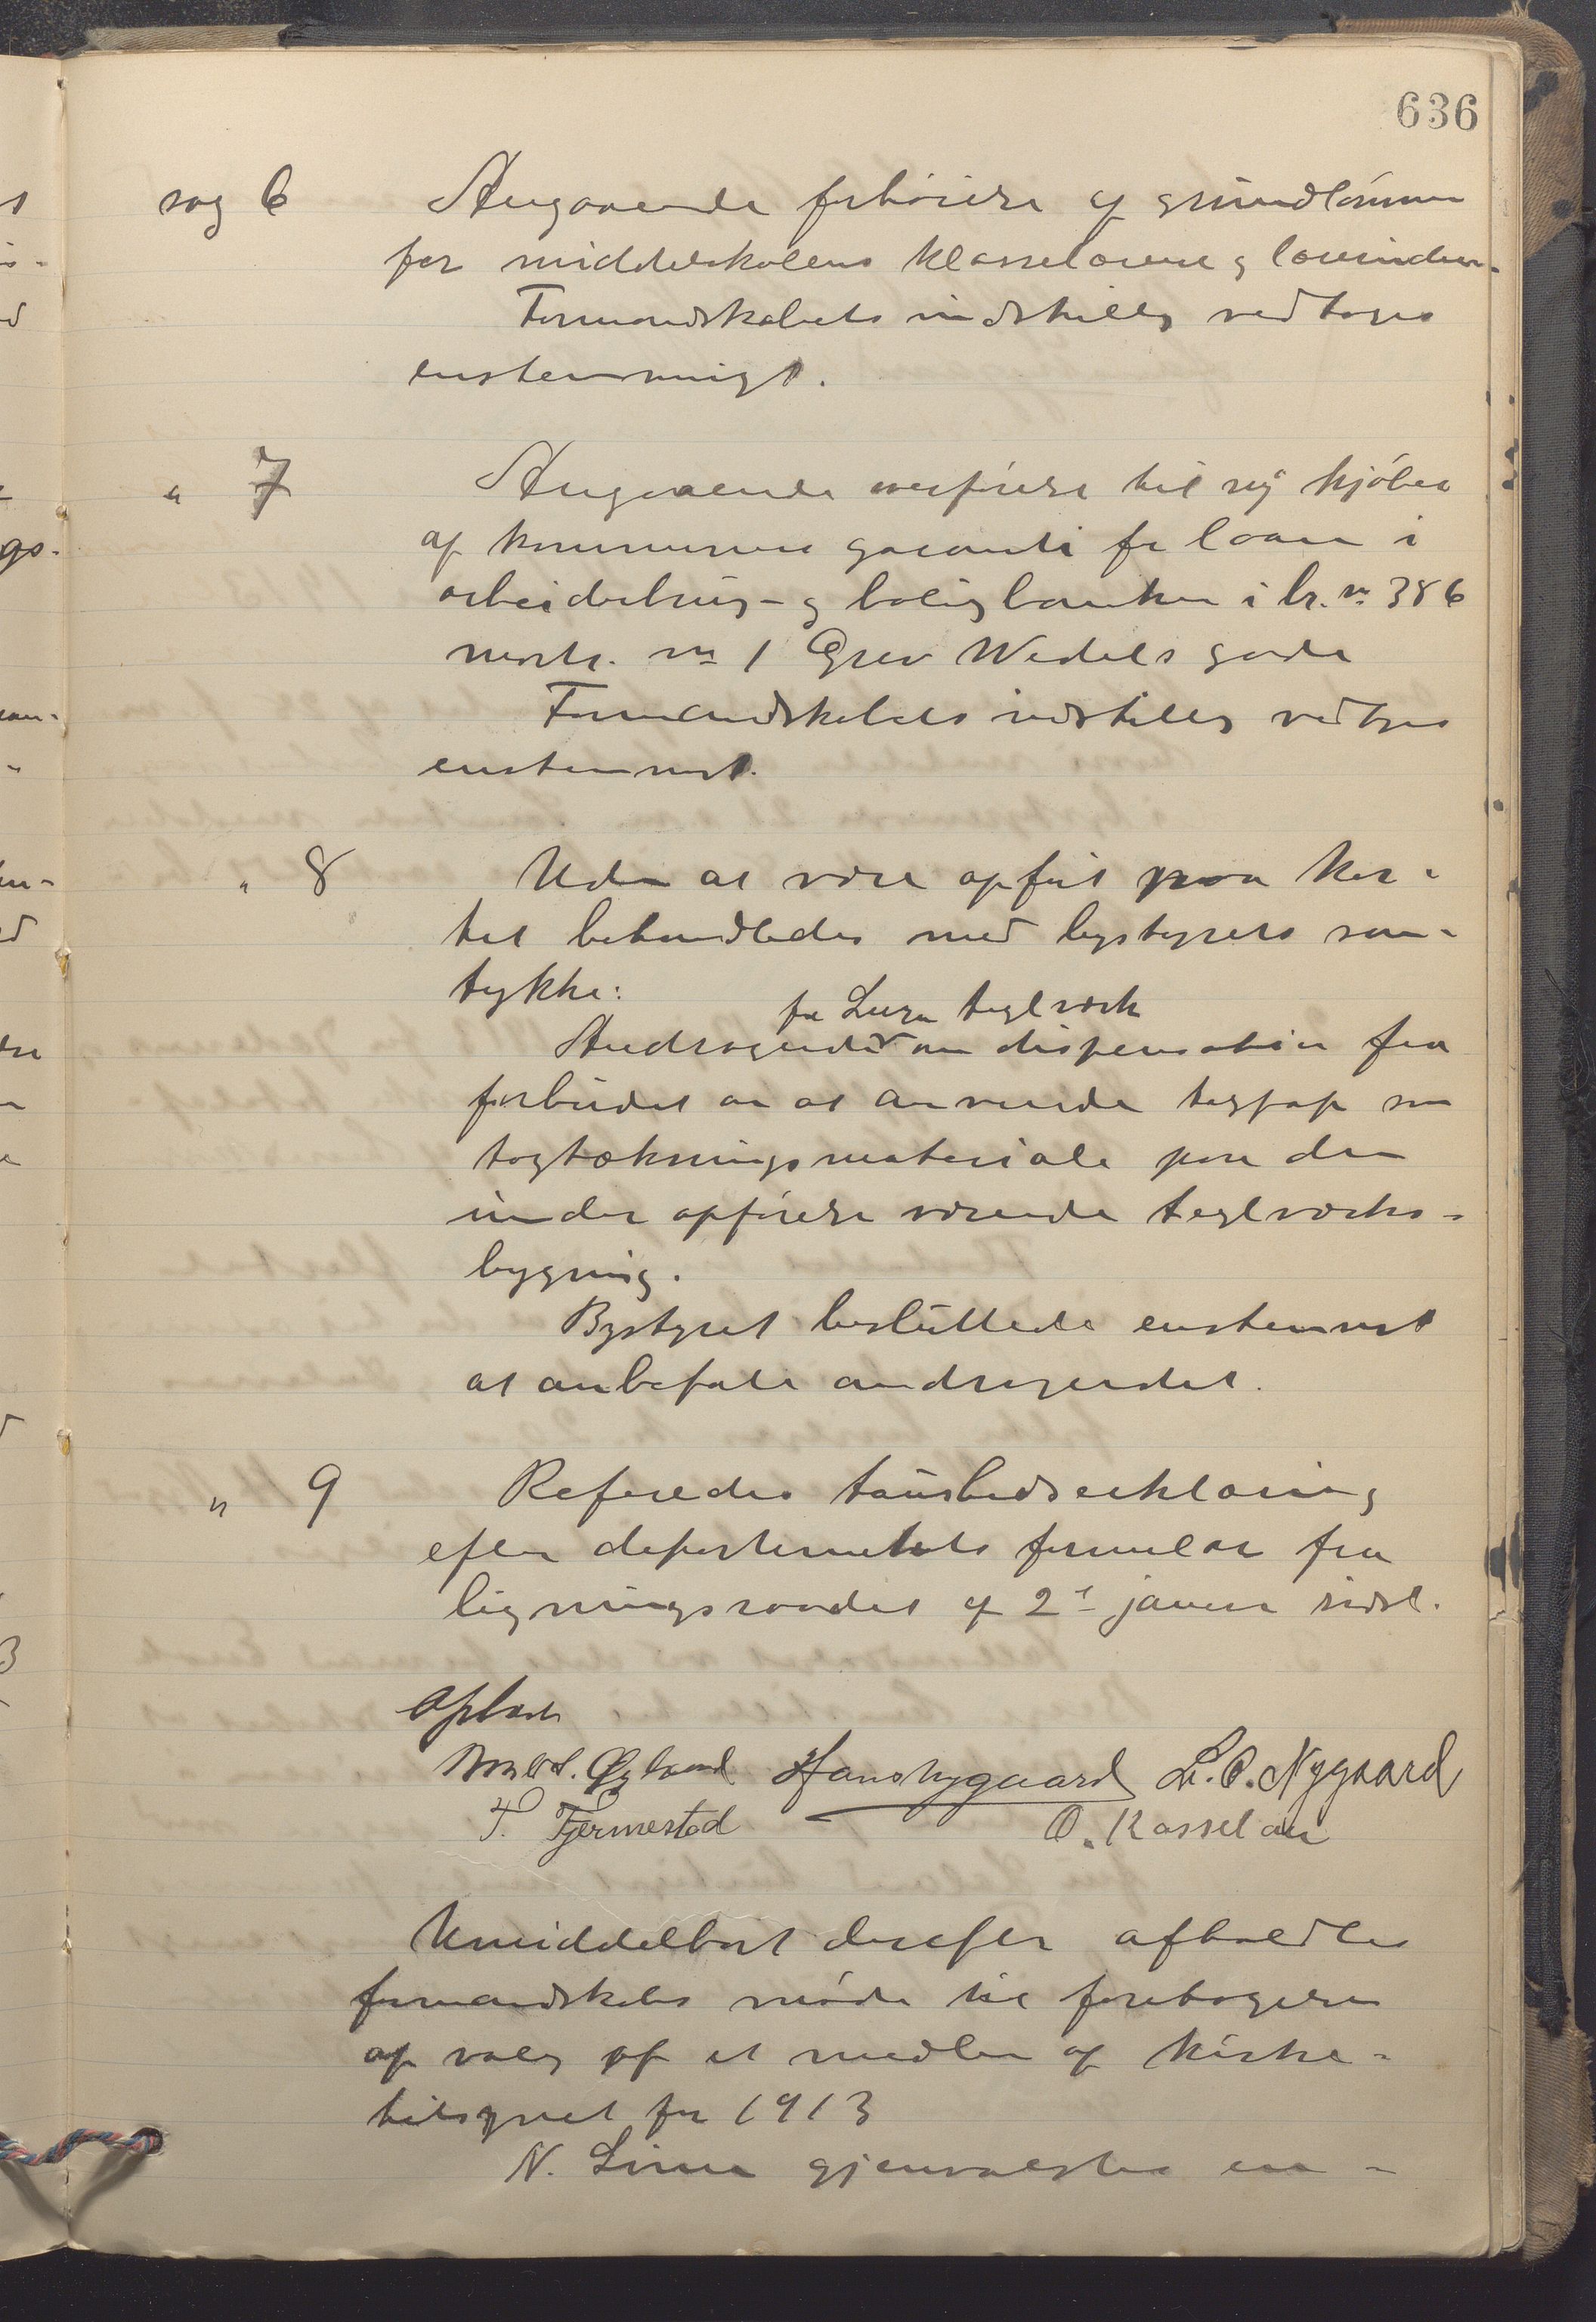 636
sag 6 Angaaende forhöielse af grundlönnen
for middelskolens klasselærere og lærerinder.
Formandskabets indstilling vedtoges
enstemmigt.
" 7 Angaaende overförelse til ny kjöber
af kommunens garanti for laan i
arbeiderbrug- og boligbanken i br. no 386
matr. no 1 Grev Wedels gade
Formandskabets indstilling vedtoges
enstemmigt.
" 8 Uden at være opfört paa kar-
tet behandledes med bystyrets sam-
tykke:
fra Lura teglværk
Andragende om dispensation fra
forbudet om at anvende tagpap som
tagtækningsmateriale paa den
under opförelse værende teglværks-
bygning.
Bystyret besluttede enstemmigt
at anbefale andragendet.
" 9 Refereredes taushedserklæring
efter departementets formular fra
ligningsraadet af 2den januar sidstl.
Oplæst
Øglænd Hans Nygaard L. O. Nygaard
T. Tjermestad O. Rasselan
Umiddelbart derefter afholdtes
formandskabs möde til foretagelse
af valg af et medlem af kirke-
tilsynet for 1913
N. Lima gjenvalgtes en-